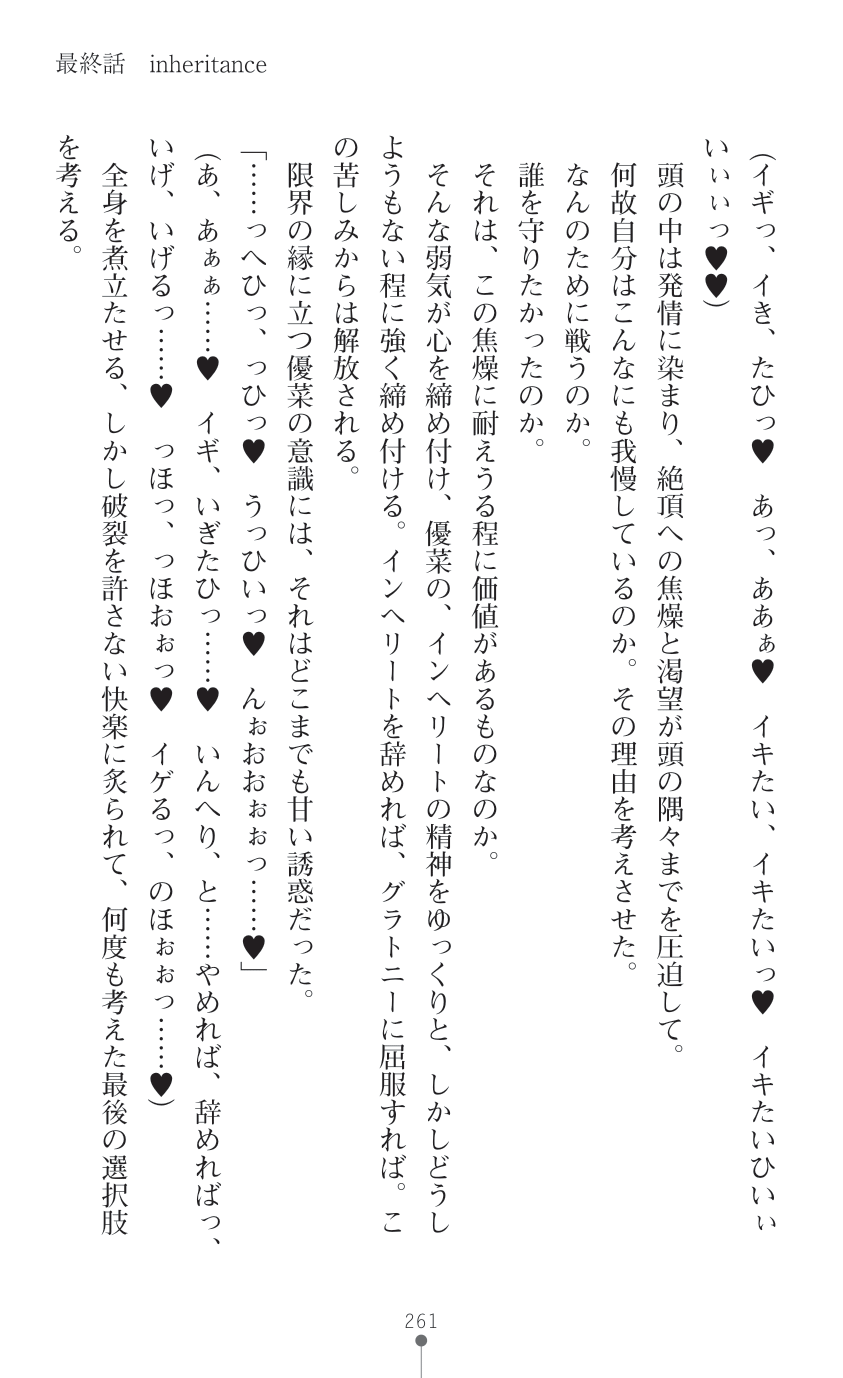 最終話　inheritance
（イギっ、イき、たひっ♥　あっ、ああぁ♥　イキたい、イキたいっ♥　イキたいひいぃ
いぃぃっ♥♥）
　頭の中は発情に染まり、絶頂への焦燥と渇望が頭の隅々までを圧迫して。
　何故自分はこんなにも我慢しているのか。その理由を考えさせた。
　なんのために戦うのか。
　誰を守りたかったのか。
　それは、この焦燥に耐えうる程に価値があるものなのか。
　そんな弱気が心を締め付け、優菜の、インヘリートの精神をゆっくりと、しかしどうし
ようもない程に強く締め付ける。インヘリートを辞めれば、グラトニーに屈服すれば。こ
の苦しみからは解放される。
　限界の縁に立つ優菜の意識には、それはどこまでも甘い誘惑だった。
「……っへひっ、っひっ♥　うっひいっ♥　んぉおおぉぉっ……♥」
（あ、あぁぁ……♥　イギ、いぎたひっ……♥　いんへり、と……やめれば、辞めればっ、
いげ、いげるっ……♥　っほっ、っほおぉっ♥　イゲるっ、のほぉぉっ……♥）
　全身を煮立たせる、しかし破裂を許さない快楽に炙られて、何度も考えた最後の選択肢
を考える。
261